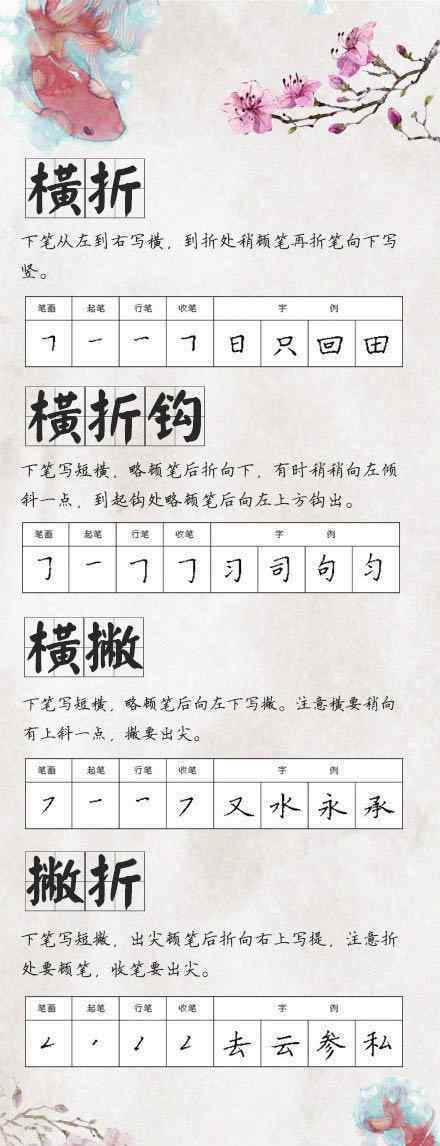 横折
下笔从左到右写横，到折处稍顿笔再折笔向下写
竖。
笔画 起笔 行笔 收笔 字 例
㇕ 一 ㇖ ㇕ 日 只 回 田
横折钩
下笔写短横，略顿笔后折向下，有时稍稍向左倾
斜一点，到起钩处略顿笔后向左上方钩出。
笔画 起笔 行笔 收笔 字 例
㇆ 一 ㇕ ㇆ 习 司 句 匀
横撇
下笔写短横，略顿笔后向左下写撇。注意横要稍向
有上斜一点，撇要出尖。
笔画 起笔 行笔 收笔 字 例
㇇ 一 ㇖ ㇇ 又 水 永 承
撇折
下笔写短撇，出尖顿笔后折向右上写提，注意折
处要顿笔，收笔要出尖。
笔画 起笔 行笔 收笔 字 例
㇜ ㇒ ㇜ 去 云 参 私